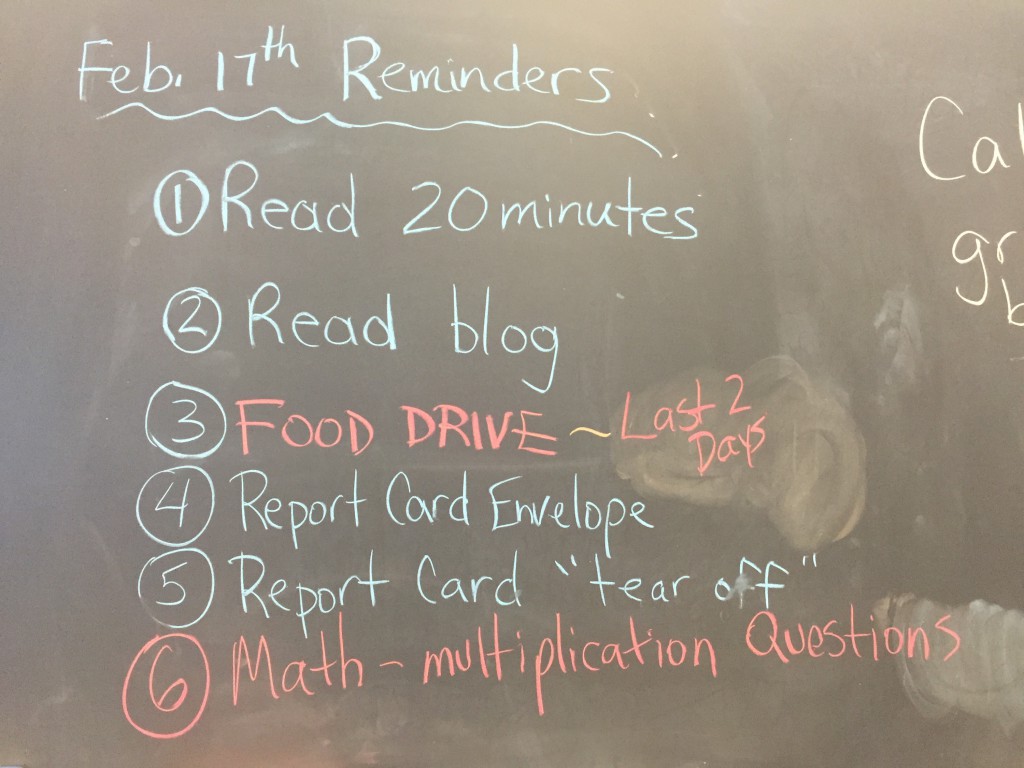 Feb. 17th Reminders
① Read 20 minutes
② Read blog
③ FOOD DRIVE ~ Last 2 Days
④ Report Card Envelope
⑤ Report Card "tear off"
⑥ Math - multiplication Questions
Cal
gr